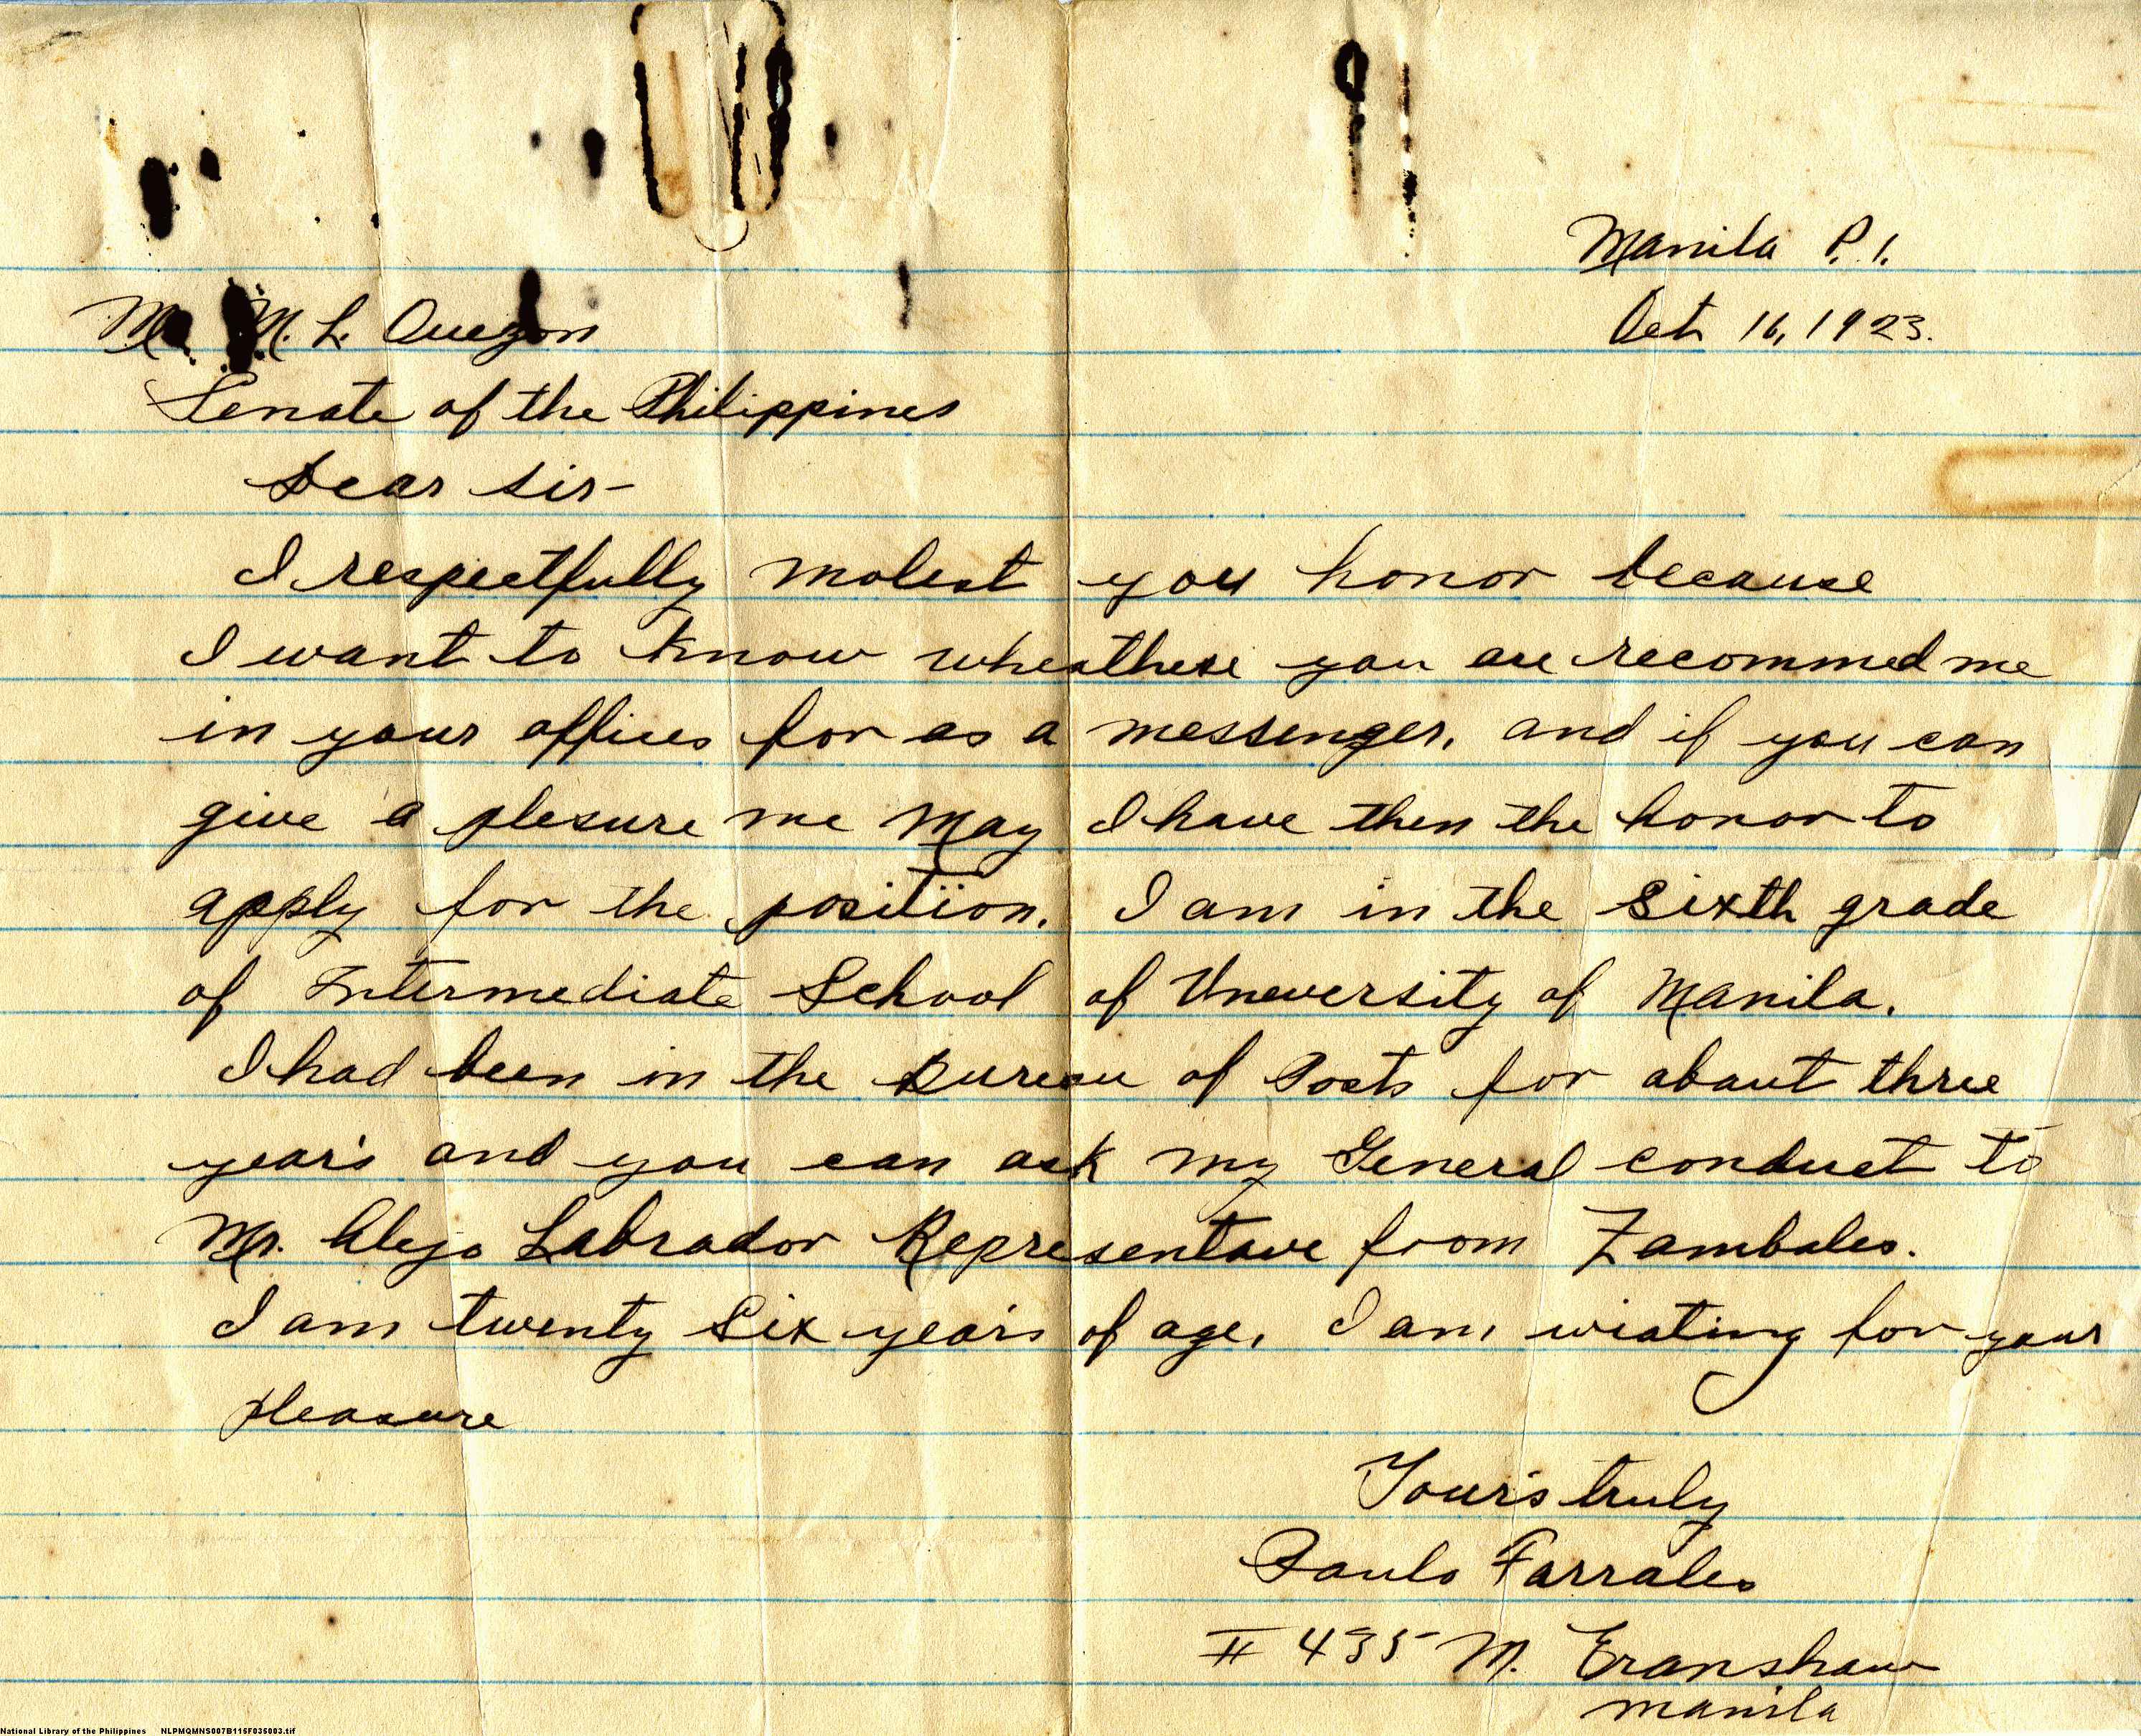 Manila P.I.
Oct 16, 1923.
Mr. M. L. Quezon
Senate of the Philippines
Dear Sir-
I respectfully molest you honor because
I want to know wheathere you are recommed me
in your offices for as a messenger, and if you can
give a plesure me May I have then the honor to
apply for the position. I am in the Sixth grade
of Intermediate School of Uneversity of Manila.
I had been in the Bureau of Posts for about three
year's and you can ask my General conduct to
Mr. Alejo Labrador Representave from Zambales.
I am twenty Six year's of age, I am wiating for your
pleasure
Your's truly
Paulo Farrales
# 435 M. Eranshaw
Manila
National Library of the Philippines NLPMQMNS007B115F035003.tif